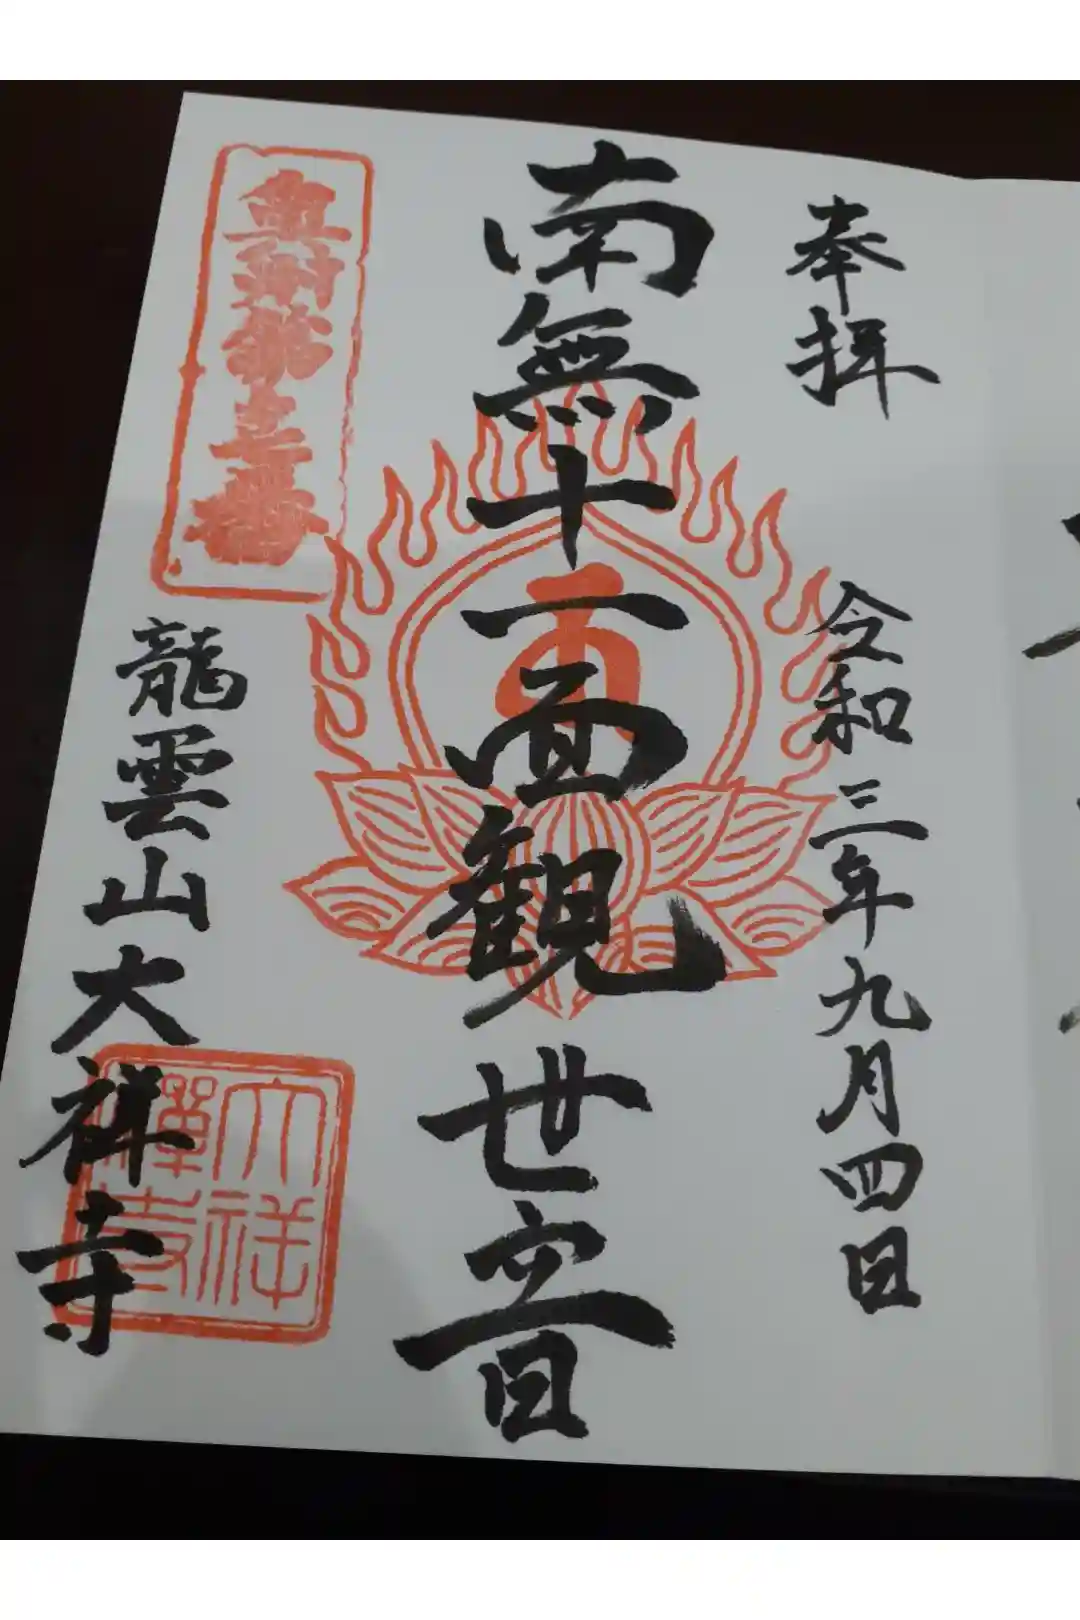 奉拝
令和三年九月四日
南無十一面観世音
龍雲山大祥寺
大祥
禅寺